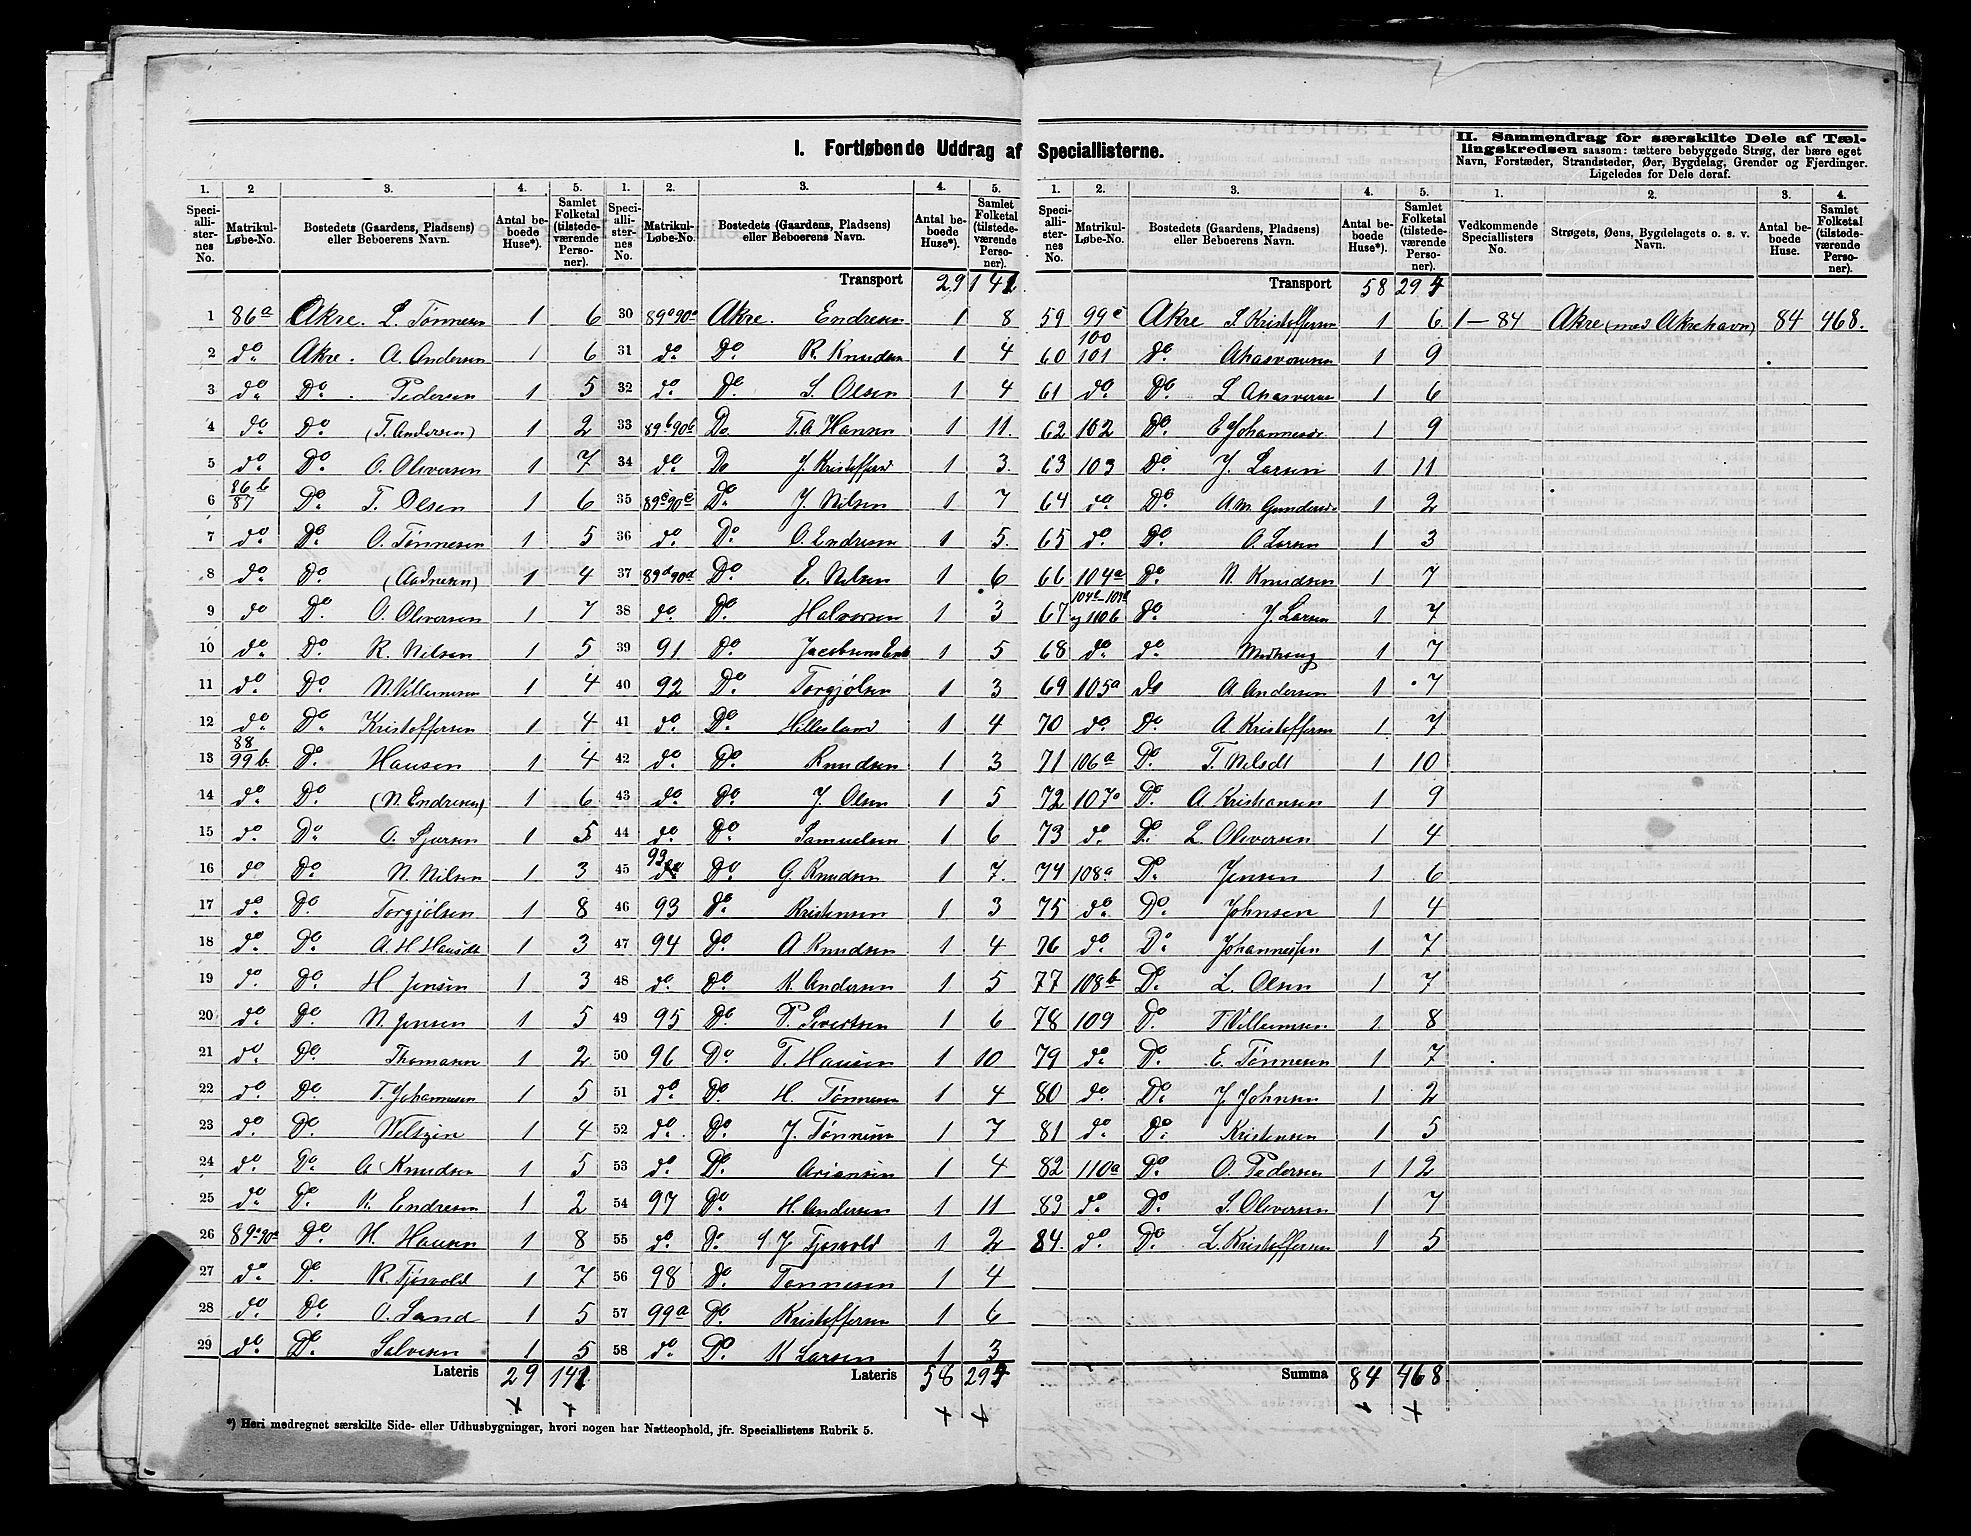 I. Fortløbende Uddrag af Speciallisterne.
II. Sammendrag for særskilte Dele af Tæl-
lingskredsen saasom: tættere bebyggede Strøg, der bære eget
Navn, Forstæder, Strandsteder, Øer, Bygdelag, Grender og Fjerdinger.
Ligeledes for Dele deraf.
1. 2 3. 4. 5. 1. 2. 3. 4. 5. 1. 2. 3. 4. 5. 1. 2. 3. 4.
Speciallisternes No. Matrikul-Løbe-No. Bostedets (Gaardens, Pladsens) eller Beboerens Navn. Antal beboede Huse*). Samlet Folketal (tilstedeværende Personer).
Speciallisternes No. Matrikul-Løbe-No. Bostedets (Gaardens, Pladsens) eller Beboerens Navn. Antal beboede Huse*). Samlet Folketal (tilstedeværende Personer).
Speciallisternes No. Matrikul-Løbe-No. Bostedets (Gaardens, Pladsens) eller Beboerens Navn. Antal beboede Huse*). Samlet Folketal (tilstedeværende Personer).
Vedkommende Speciallisters No. Strøgets, Øens, Bygdelagets o. s. v. Navn. Antal beboede Huse. Samlet Folketal (tilstedeværende Personer).
1 86a Akre. L. Tønnesen 1 6
2 do Akre. A. Andersen 1 6
3 do Do. Pedersen 1 5
4 do Do (T. Andersen) 1 2
5 do Do. O. Oliversen 1 7
6 86b 87 Do. T. Olsen 1 6
7 do Do. O. Tønnesen 1 5
8 do Do. (Aadnesen) 1 4
9 do Do. O. Oliversen 1 7
10 do Do. R. Nilsen 1 5
11 do Do. N. Villumsen 1 4
12 do Do. Kristoffersen 1 4
13 88 99b. Do. Hansen 1 4
14 do Do. (N. Endresen) 1 6
15 do Do 1 5
16 do Do N. Nilsen 1 3
17 do Do. Torgjølsen 1 8
18 do Do. A. H. Hansdt 1 3
19 do. Do. H Jensen 1 3
20 do. Do. N. Jensen 1 5
21 do. Do. Thomasen 1 2
22 do. Do. T. Johannesen 1 5
23 do. Do. 1 4
24 do. Do. A Knudsen 1 5
25 do Do. K. Endresen 1 2
26 89a 90a Do. H. Hansen 1 8
27 do Do. R. Tjøsvold 1 7
28 do Do. O. Sand 1 5
29 do. Do. Salvesen 1 5
Lateris 29 141
Transport 29 141
30 89a 90a Akre. Endresen 1 8
31 do Do. R. Knudsen 1 4
32 do. Do. S. Olsen 1 4
33 89b 90b Do. T. A. Hansen 1 11.
34 do Do J. Kristoffersd 1 3.
35 89c 90c Do. J. Nilsen 1 7
36 do Do. O. Endresen 1 5.
37 89d 90d Do. E. Nilsen 1 6
38 do. Do. Halvorsen 1 3
39 91 Do. Jacobsens Enke 1 5
40 92 Do. Torgjølsen 1 3
41 do. Do. Hillesland 1 4
42 do. Do. Knudsen 1 3
43 do. Do. J. Olsen 1 5
44 do. Do. Samuelsen 1 6
45 93 Do. G. Knudsen 1 7.
46 93 do. Kristensen 1 3
47 94 Do. A Knudsen 1 4
48 do. Do. K. Andersen 1 5
49 95 Do. P. Sivertsen 1 6
50 96 Do T. Hansen 1 10
51 do. Do. H. Tønnesen 1 4
52 do. Do. J. Tønnesen 1 7
53 do. Do. Ariansen 1 4
54 97 Do. H. Andersen 1 11
55 do. Do. J. Tjøsvold 1 2
56 98 Do. Tønnesen 1 4
57 99a Do. Kristoffersen 1 6
58 do. Do. K Larsen 1 3
Lateris 58 297
Transport 58 297
59 99c Akre S Kristoffersen 1 6
60 100 101 Do. Ahasverusen 1 9
61 do. Do. L Ahasverus 1 6
62 102 Do. E Johannesdr 1 9
63 103 Do. J. Larsen 1 11
64 do. Do. A.M. Gundersd 1 2
65 do. Do. O. Larsen 1 3
66 104a Do. N. Knudsen 1 7
67 og 110b Do. J. Larsen 1 7
68 do. do. Medhaug 1 7
69 105a do A. Andersen 1 7
70 do. Do. A. Kristoffersen 1 7
71 106a Do. T. Nilsdt 1 10
72 107a Do. A Kristiansen 1 9
73 do. Do. L. Oliversen 1 4
74 108a Do. Jensen 1 6
75 do. Do. Johnsen 1 4
76 do. Do. Johannessen 1 7
77 108b Do. L. Olsen 1 7
78 109 Do. T Villumsen 1 8
79 do. Do. E. Tønnesen 1 7
80 do. Do. J. Johnsen 1 2
81 do. Do. Kristensen 1 5
82 110a Do. O. Pedersen 1 12
83 do. Do. S. Oliversen 1 7
84. do. Do. L. Kristoffersen 1 5
Summa 84 468
1 – 84 Akre (med Akrehavn) 84 468.
*) Heri medregnet særskilte Side- eller Udhusbygninger, hvori nogen har Natteophold, jfr. Speciallistens Rubrik 5.